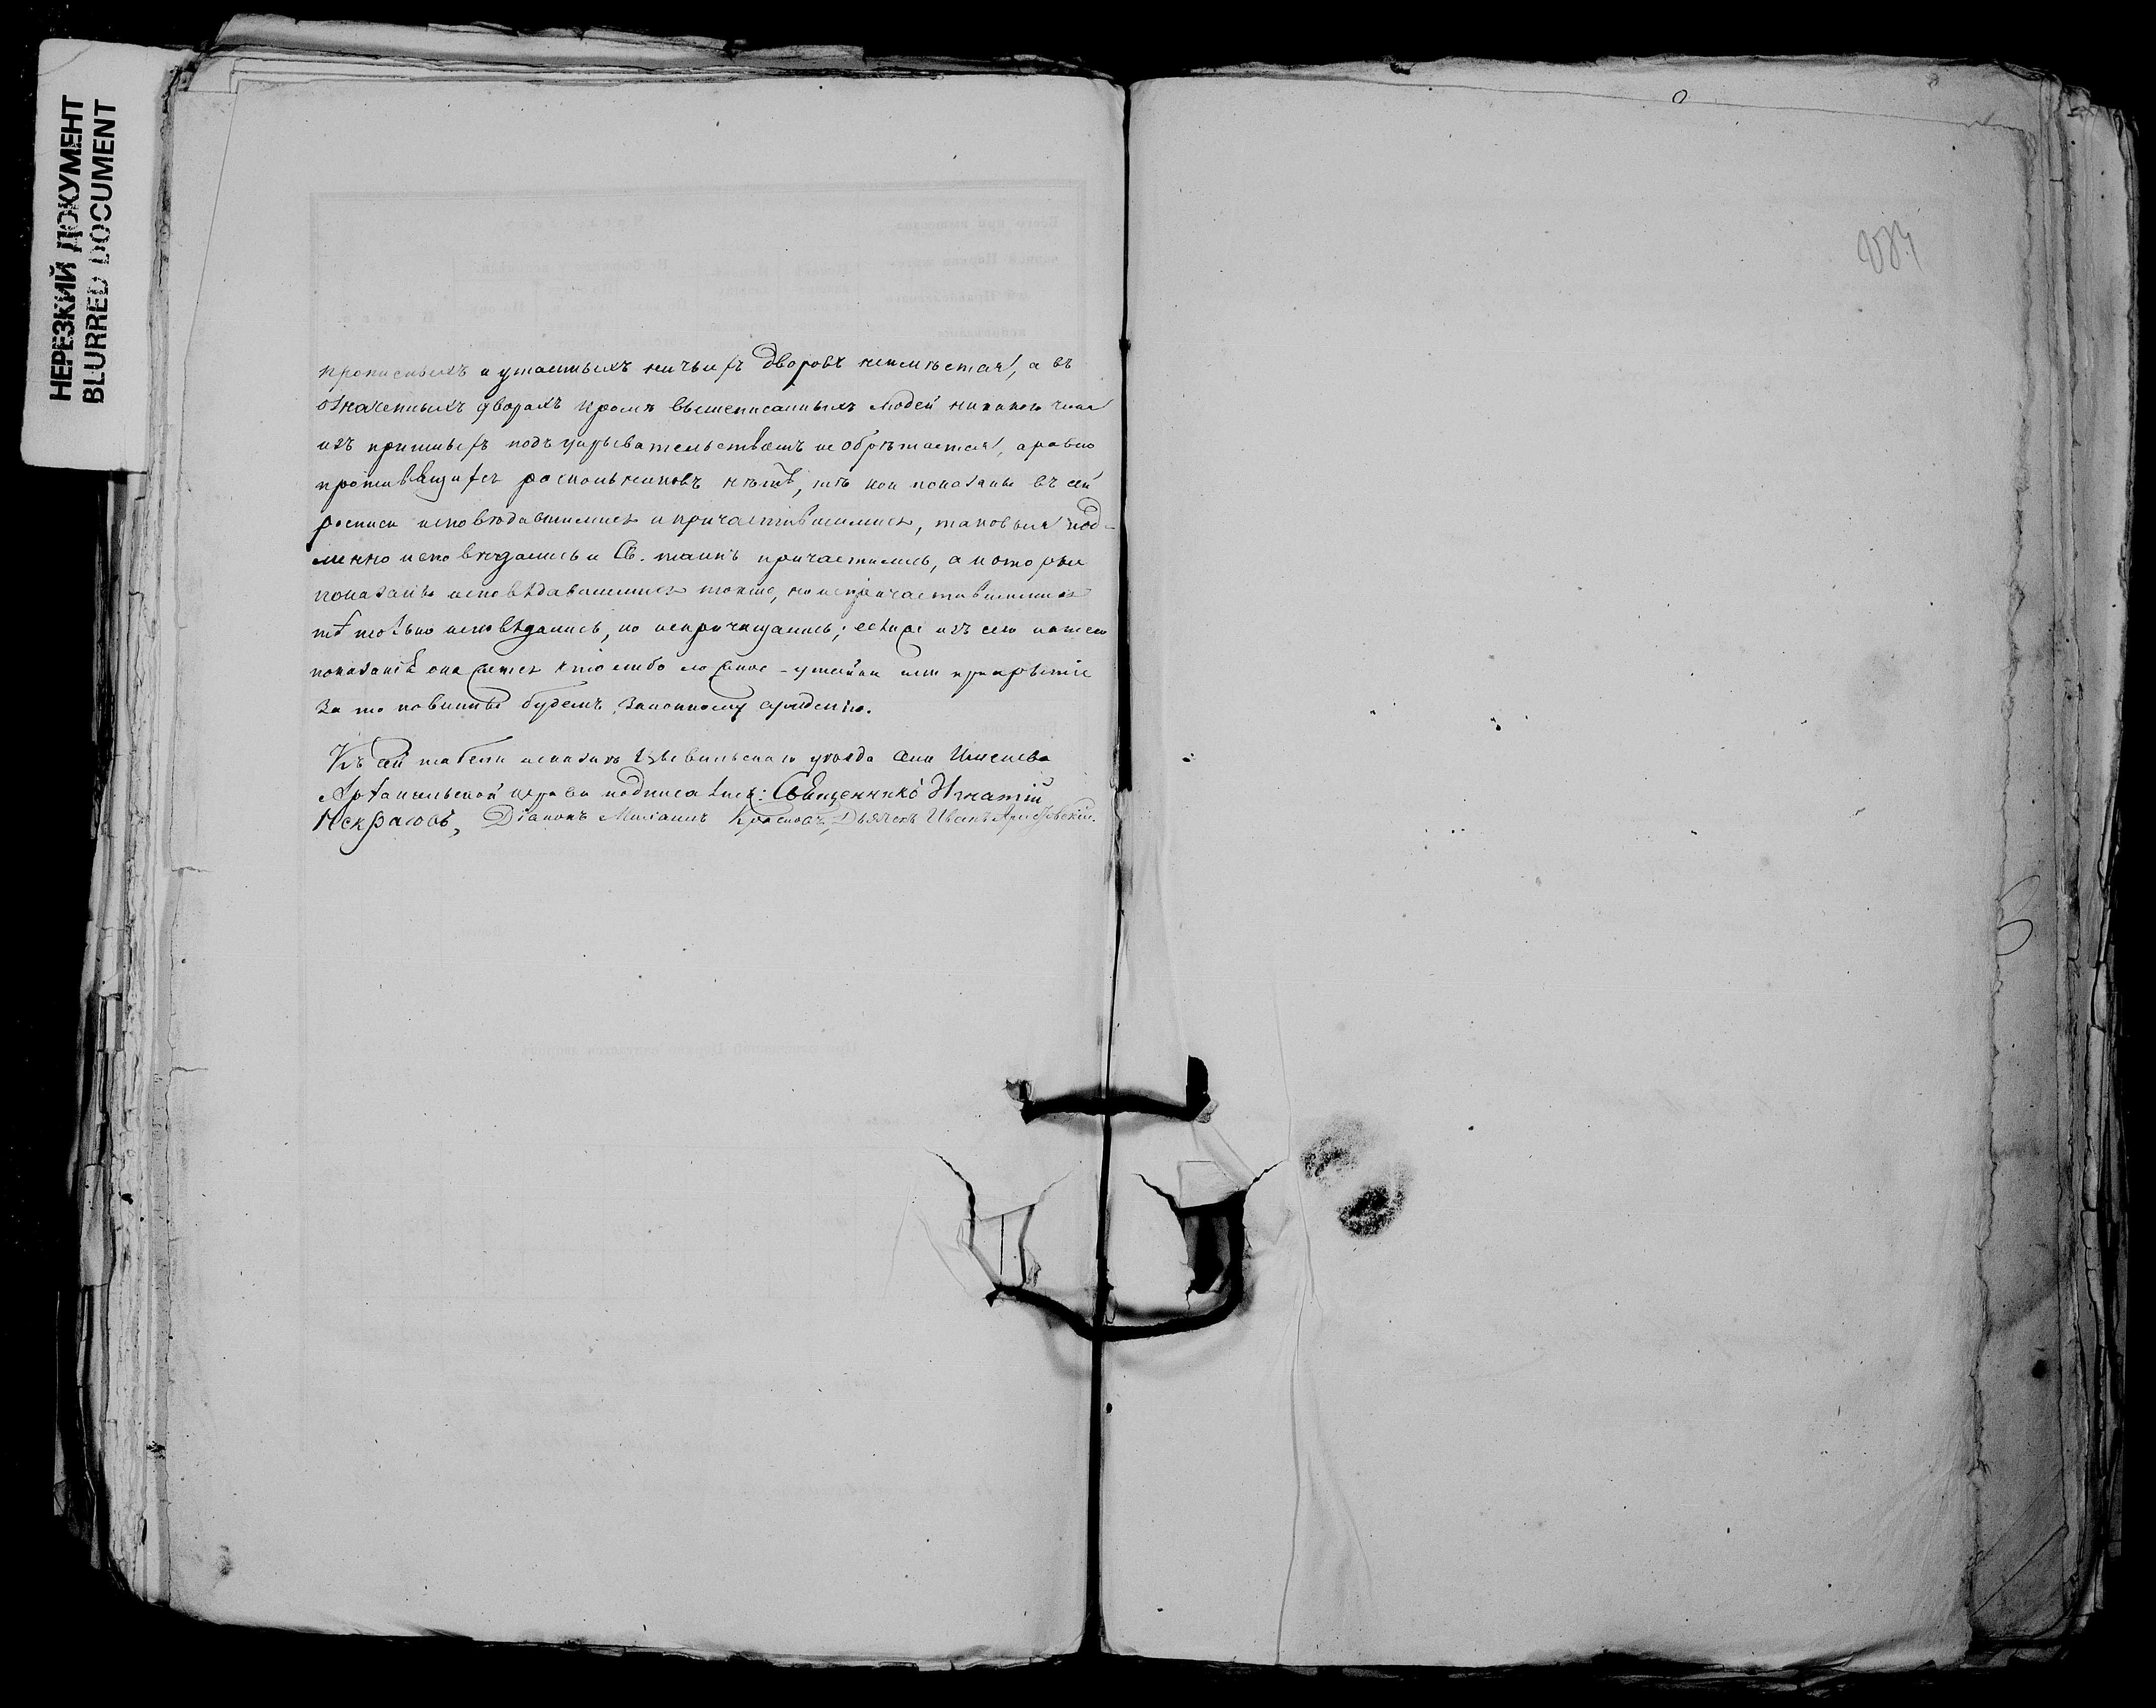 НЕРЕЗКИЙ ДОКУМЕНТ
BLURRED DOCUMENT
прописныхъ и утаенныхъ ничьихъ дворовъ неимѣется, а въ
означенныхъ дворахъ кромѣ вышеписанныхъ людей никакого чина
изъ пришлыхъ подъ укрывательствомъ не обрѣтается, а равно
противящихся роскольниковъ нѣтъ, кои показаны въ сей
росписи исповѣдавшимися и причастившимися, таковыя под-
линно исповѣдались и Св. таинъ причастились, а которые
показаны исповѣдавшимися токмо, но непричастившимися
тѣ только исповѣдались, но непричащались; естьли изъ сего нашего
показанія окажется что либо ложное - утайка или прикрытіе
За то повинны будемъ законному сужденію.
Къ сей табели исповѣди Цывильскаго уѣзда села
Архангельской церкви подписались: Священникъ Игнатій
Некрасовъ, Діаконъ Михаилъ Красновъ, Дьячекъ Иванъ